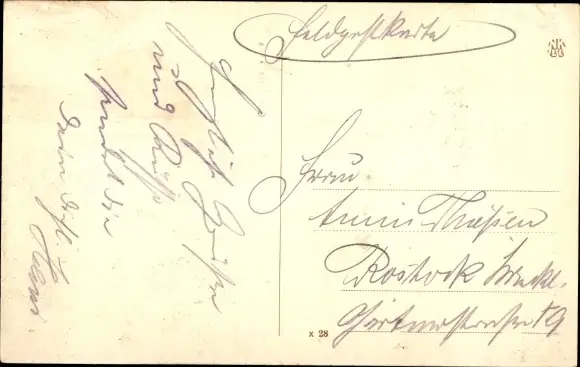 Feldpostkarte
Herzliche Grüße
und Küsse
sendet dir
Dein dich l.
Hans.
Frau
Anni Thießen
Rostock Meckl.
Gärtnerstraße 19
x 28